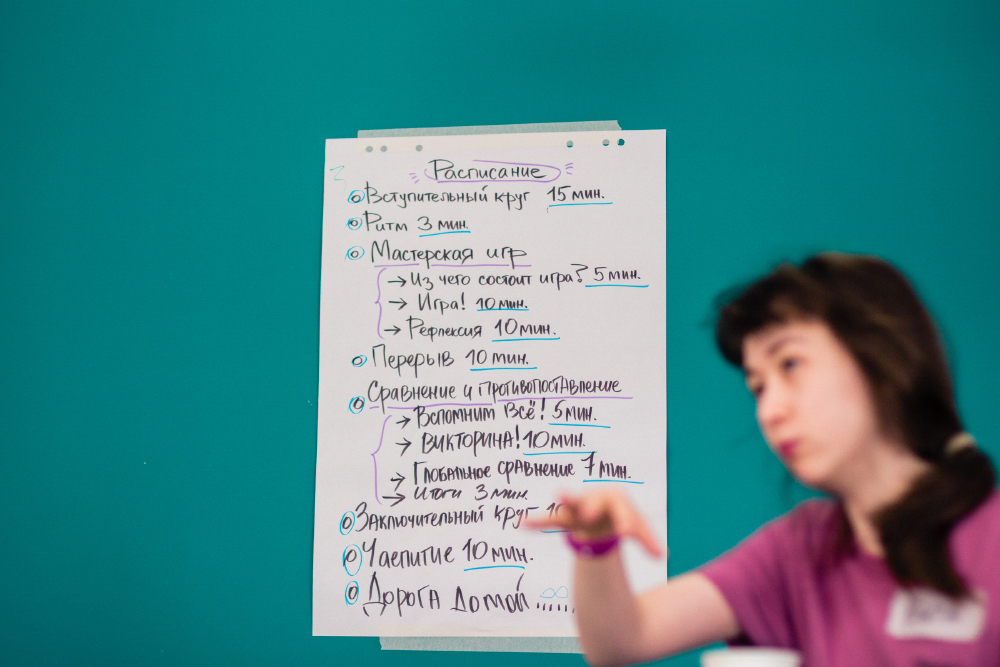 Расписание
Вступительный круг 15 мин.
Ритм 3 мин.
Мастерская игр
→ Из чего состоит игра? 5 мин.
→ Игра! 10 мин.
→ Рефлексия 10 мин.
Перерыв 10 мин.
Сравнение и противопоставление
→ Вспомним всё! 5 мин.
→ ВИКТОРИНА! 10 мин.
→ Глобальное сравнение 7 мин.
→ Итоги 3 мин.
Заключительный круг
Чаепитие 10 мин.
Дорога домой